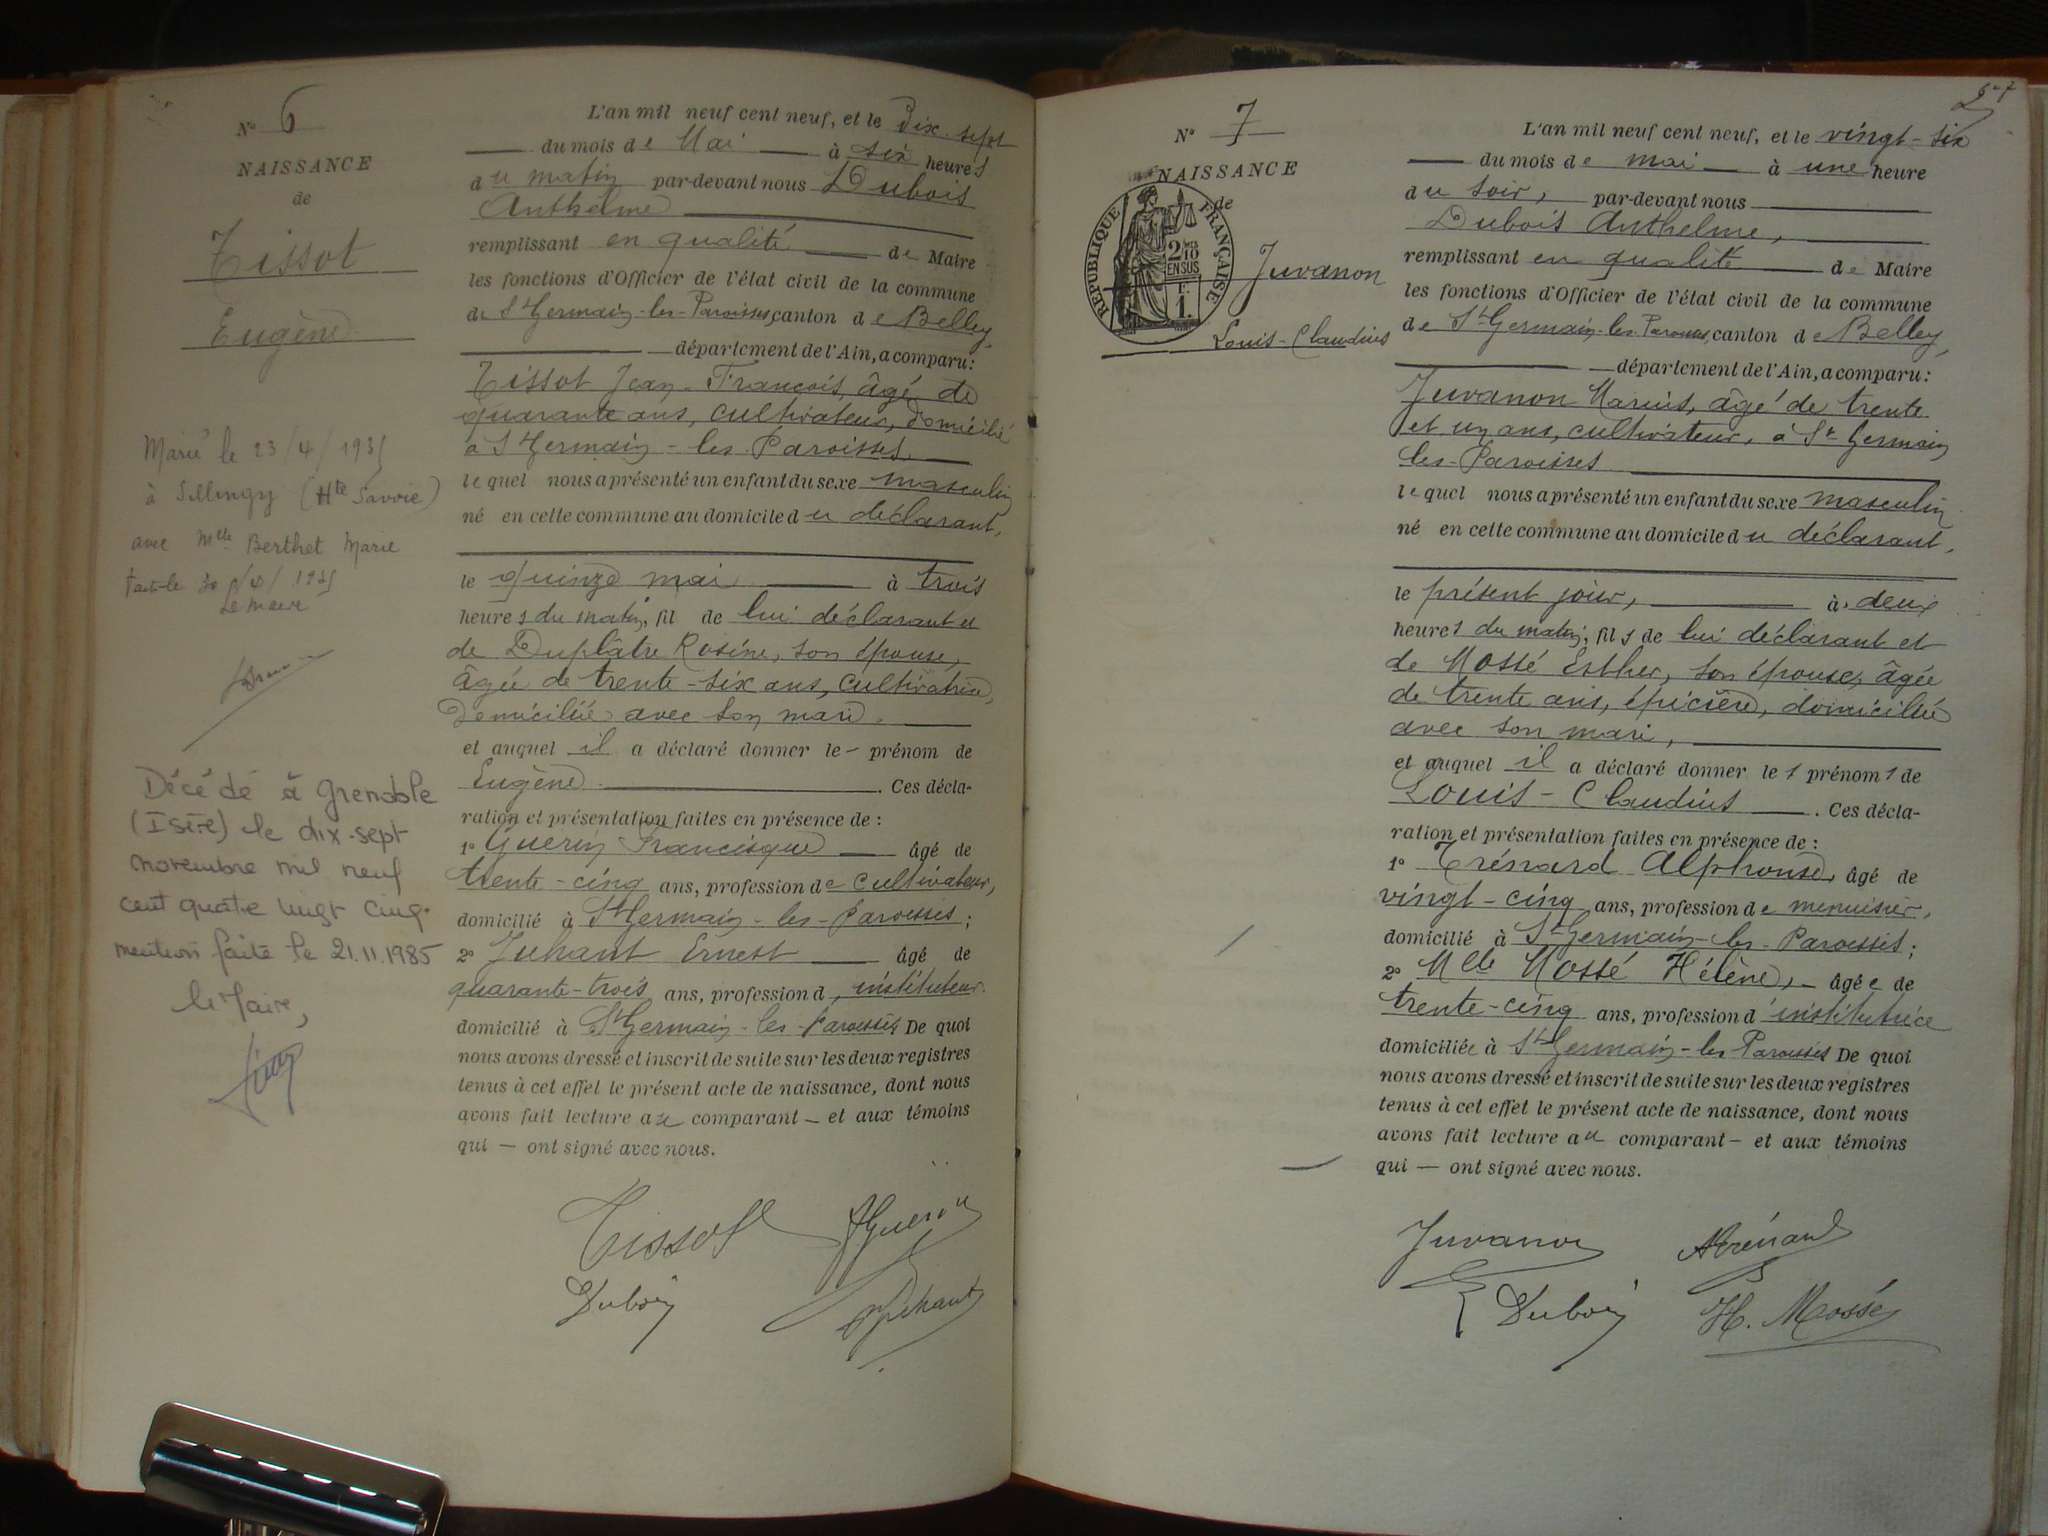 Nº 6
NAISSANCE
de
Tissot
Eugène
Marié le 23/4/1935
à Sillingy (Hte Savoie)
avec Melle Berthet Marie
Le Maire
Décédé à Grenoble
(Isère) le dix-sept
novembre mil neuf
cent quatre vingt cinq.
mention faite le 21.11.1985
le Maire,
L'an mil neuf cent neuf, et le Dix-sept
du mois de Mai à six heures
du matin par-devant nous Dubois
Anthelme
remplissant en qualité de Maire
les fonctions d'Officier de l'état civil de la commune
de St Germain-les-Paroisses, canton de Belley,
département de l'Ain, a comparu:
Tissot Jean-François, âgé de
quarante ans, cultivateur, domicilié
à St Germain-les-Paroisses,
lequel nous a présenté un enfant du sexe masculin
né en cette commune au domicile du déclarant,
le quinze mai, à trois
heures du matin, fil de lui déclarant et
de Duplâtre Rosine, son épouse,
âgée de trente-six ans, cultivatrice,
domiciliée avec son mari.
et auquel il a déclaré donner le – prénom de
Eugène. Ces décla-
ration et présentation faites en présence de :
1º Guerin Francisque âgé de
trente-cinq ans, profession de cultivateur,
domicilié à St Germain-les-Paroisses;
2º Juhant Ernest âgé de
quarante-trois ans, profession d'instituteur.
domicilié à St Germain-les-Paroisses De quoi
nous avons dressé et inscrit de suite sur les deux registres
tenus à cet effet le présent acte de naissance, dont nous
avons fait lecture au comparant – et aux témoins
qui — ont signé avec nous.
Tissot FGuerin
Dubois Juhant
Nº 7
NAISSANCE
de
RÉPUBLIQUE FRANÇAISE
2/10 EN SUS
F. 1.
Juvanon
Louis-Claudius
L'an mil neuf cent neuf, et le vingt-six
du mois de mai à une heure
du soir, par-devant nous
Dubois Anthelme,
remplissant en qualité de Maire
les fonctions d'Officier de l'état civil de la commune
de St Germain-les-Paroisses, canton de Belley,
département de l'Ain, a comparu:
Juvanon Marius, âgé de trente
et un ans, cultivateur, à St Germain
les-Paroisses
lequel nous a présenté un enfant du sexe masculin
né en cette commune au domicile du déclarant,
le présent jour, à deux
heures du matin, fils de lui déclarant et
de Mossé Esther, son épouse, âgée
de trente ans, épicière, domiciliée
avec son mari,
et auquel il a déclaré donner les prénoms de
Louis-Claudius. Ces décla-
ration et présentation faites en présence de :
1º Trénard Alphonse, âgé de
vingt-cinq ans, profession de menuisier,
domicilié à St Germain-les-Paroisses;
2º Melle Mossé Hélène, – âgée de
trente-cinq ans, profession d'institutrice
domiciliée à St Germain-les-Paroisses De quoi
nous avons dressé et inscrit de suite sur les deux registres
tenus à cet effet le présent acte de naissance, dont nous
avons fait lecture au comparant – et aux témoins
qui — ont signé avec nous.
Juvanon ATrénard
Dubois H. Mossé